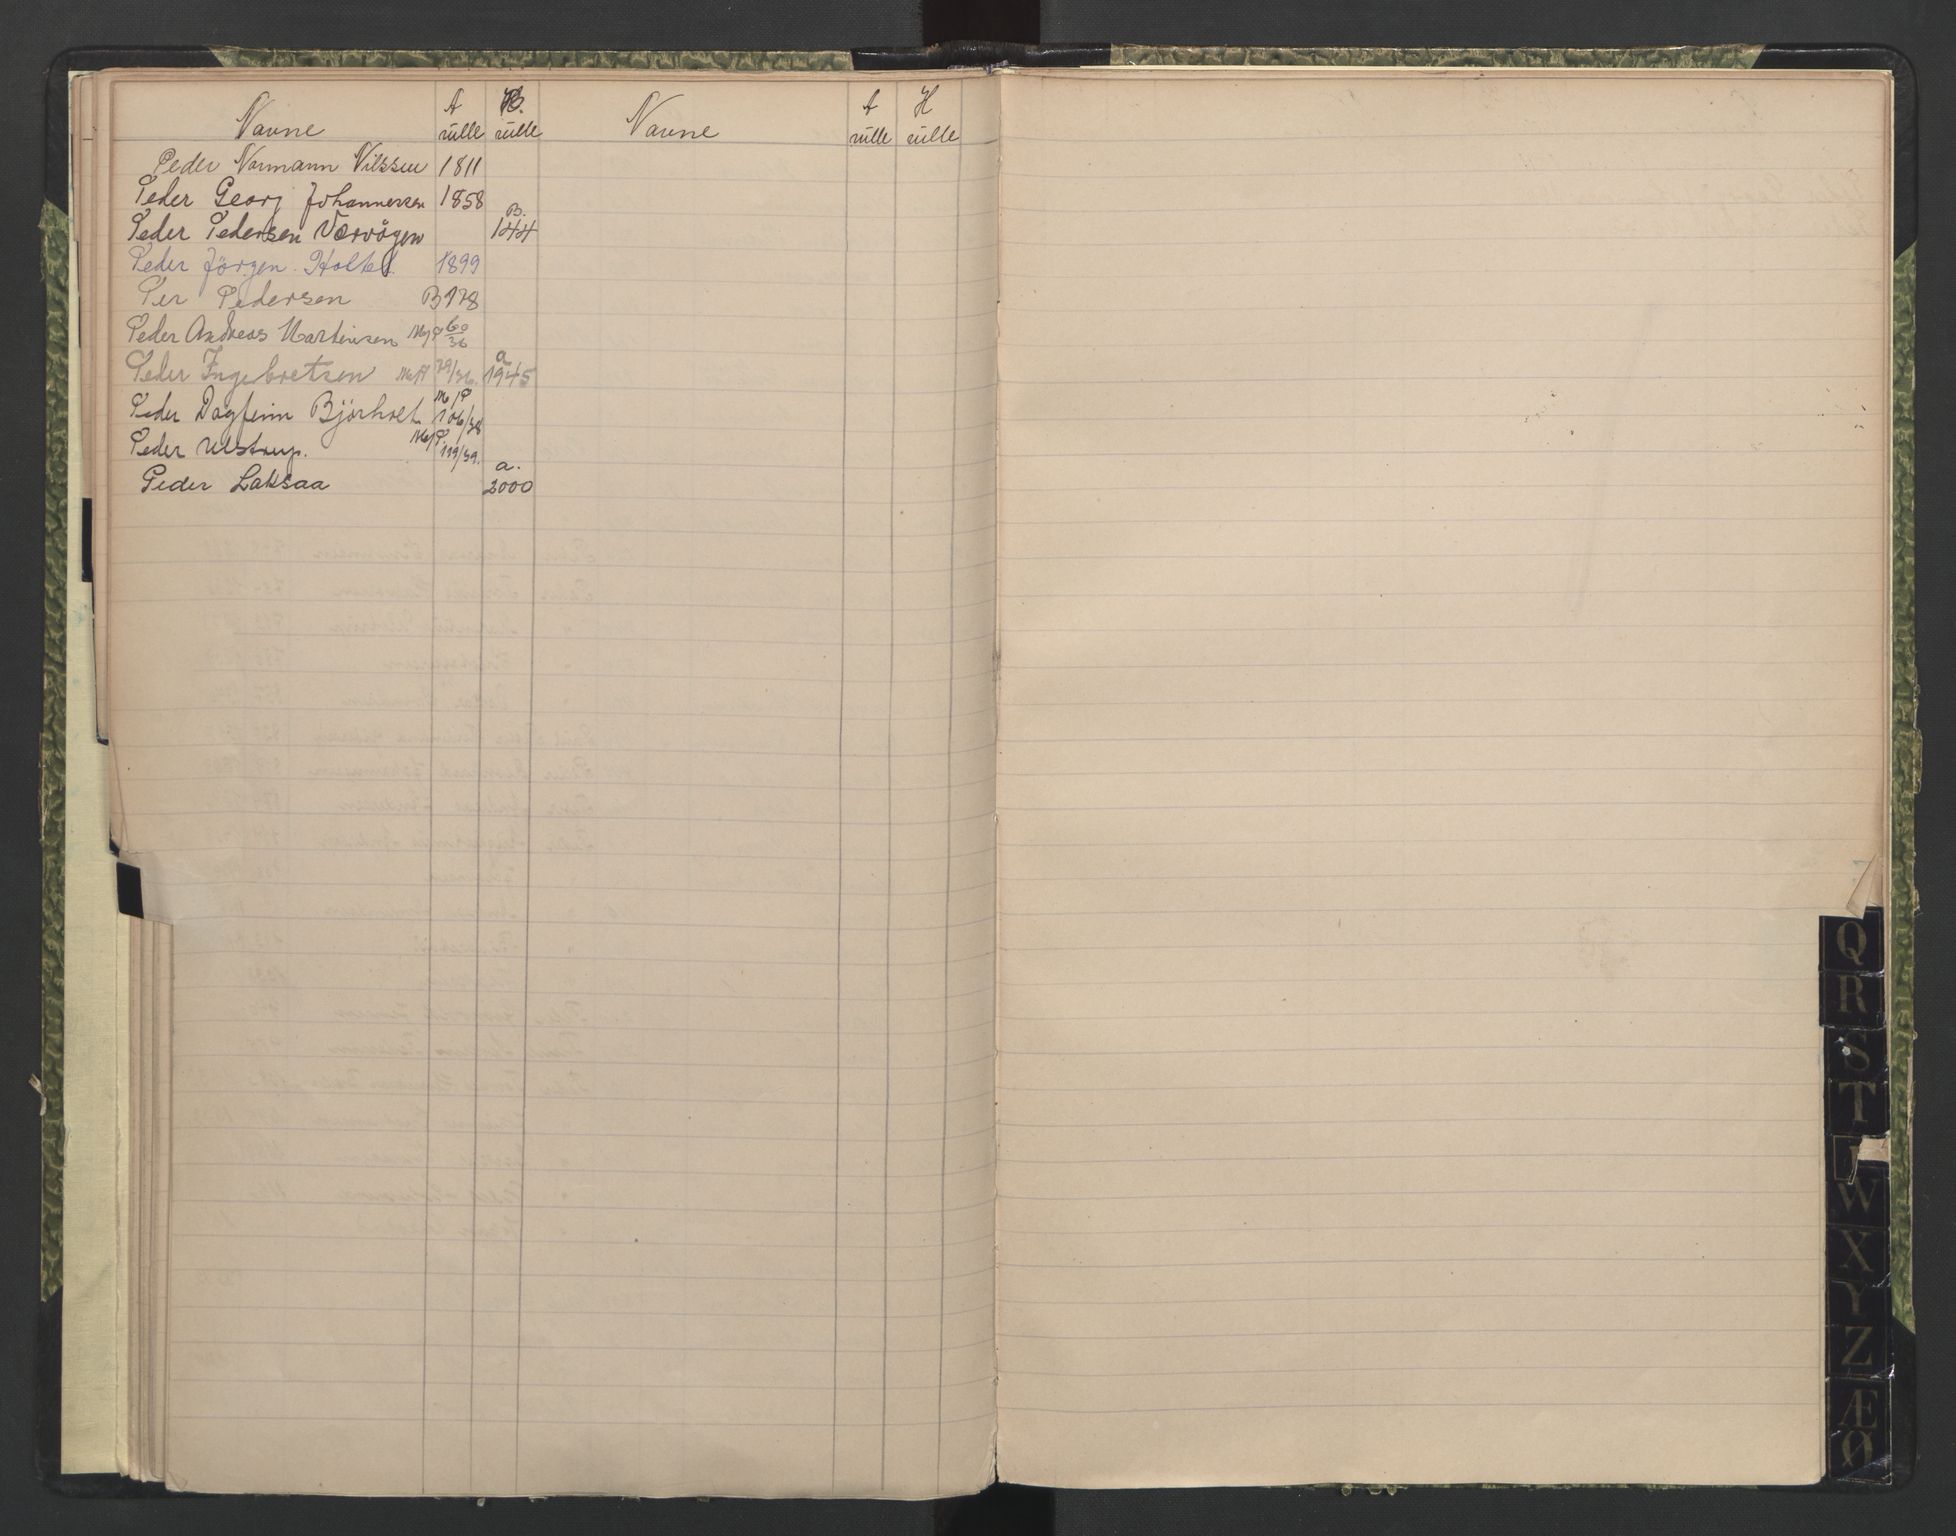 Navne A rulle B. rulle Navne A rulle H rulle
Peder Normann Nilssen 1811
Peder Georg Johannessen 1858
Peder Pedersen Værvågen B. 144
Peder Jörgen Holte 1899
Per Pedersen B 178
Peder Andreas Martinsen M/P 60/36
Peder Ingebretsen M/P 79/36. a 1945
Peder Dagfinn Bjørholt M/P 106/38
Peder Ulstrup. M/P. 119/39.
Peder Laksaa a. 2000
Q
R
S
T
W
X
Y
Z
Æ
Ø